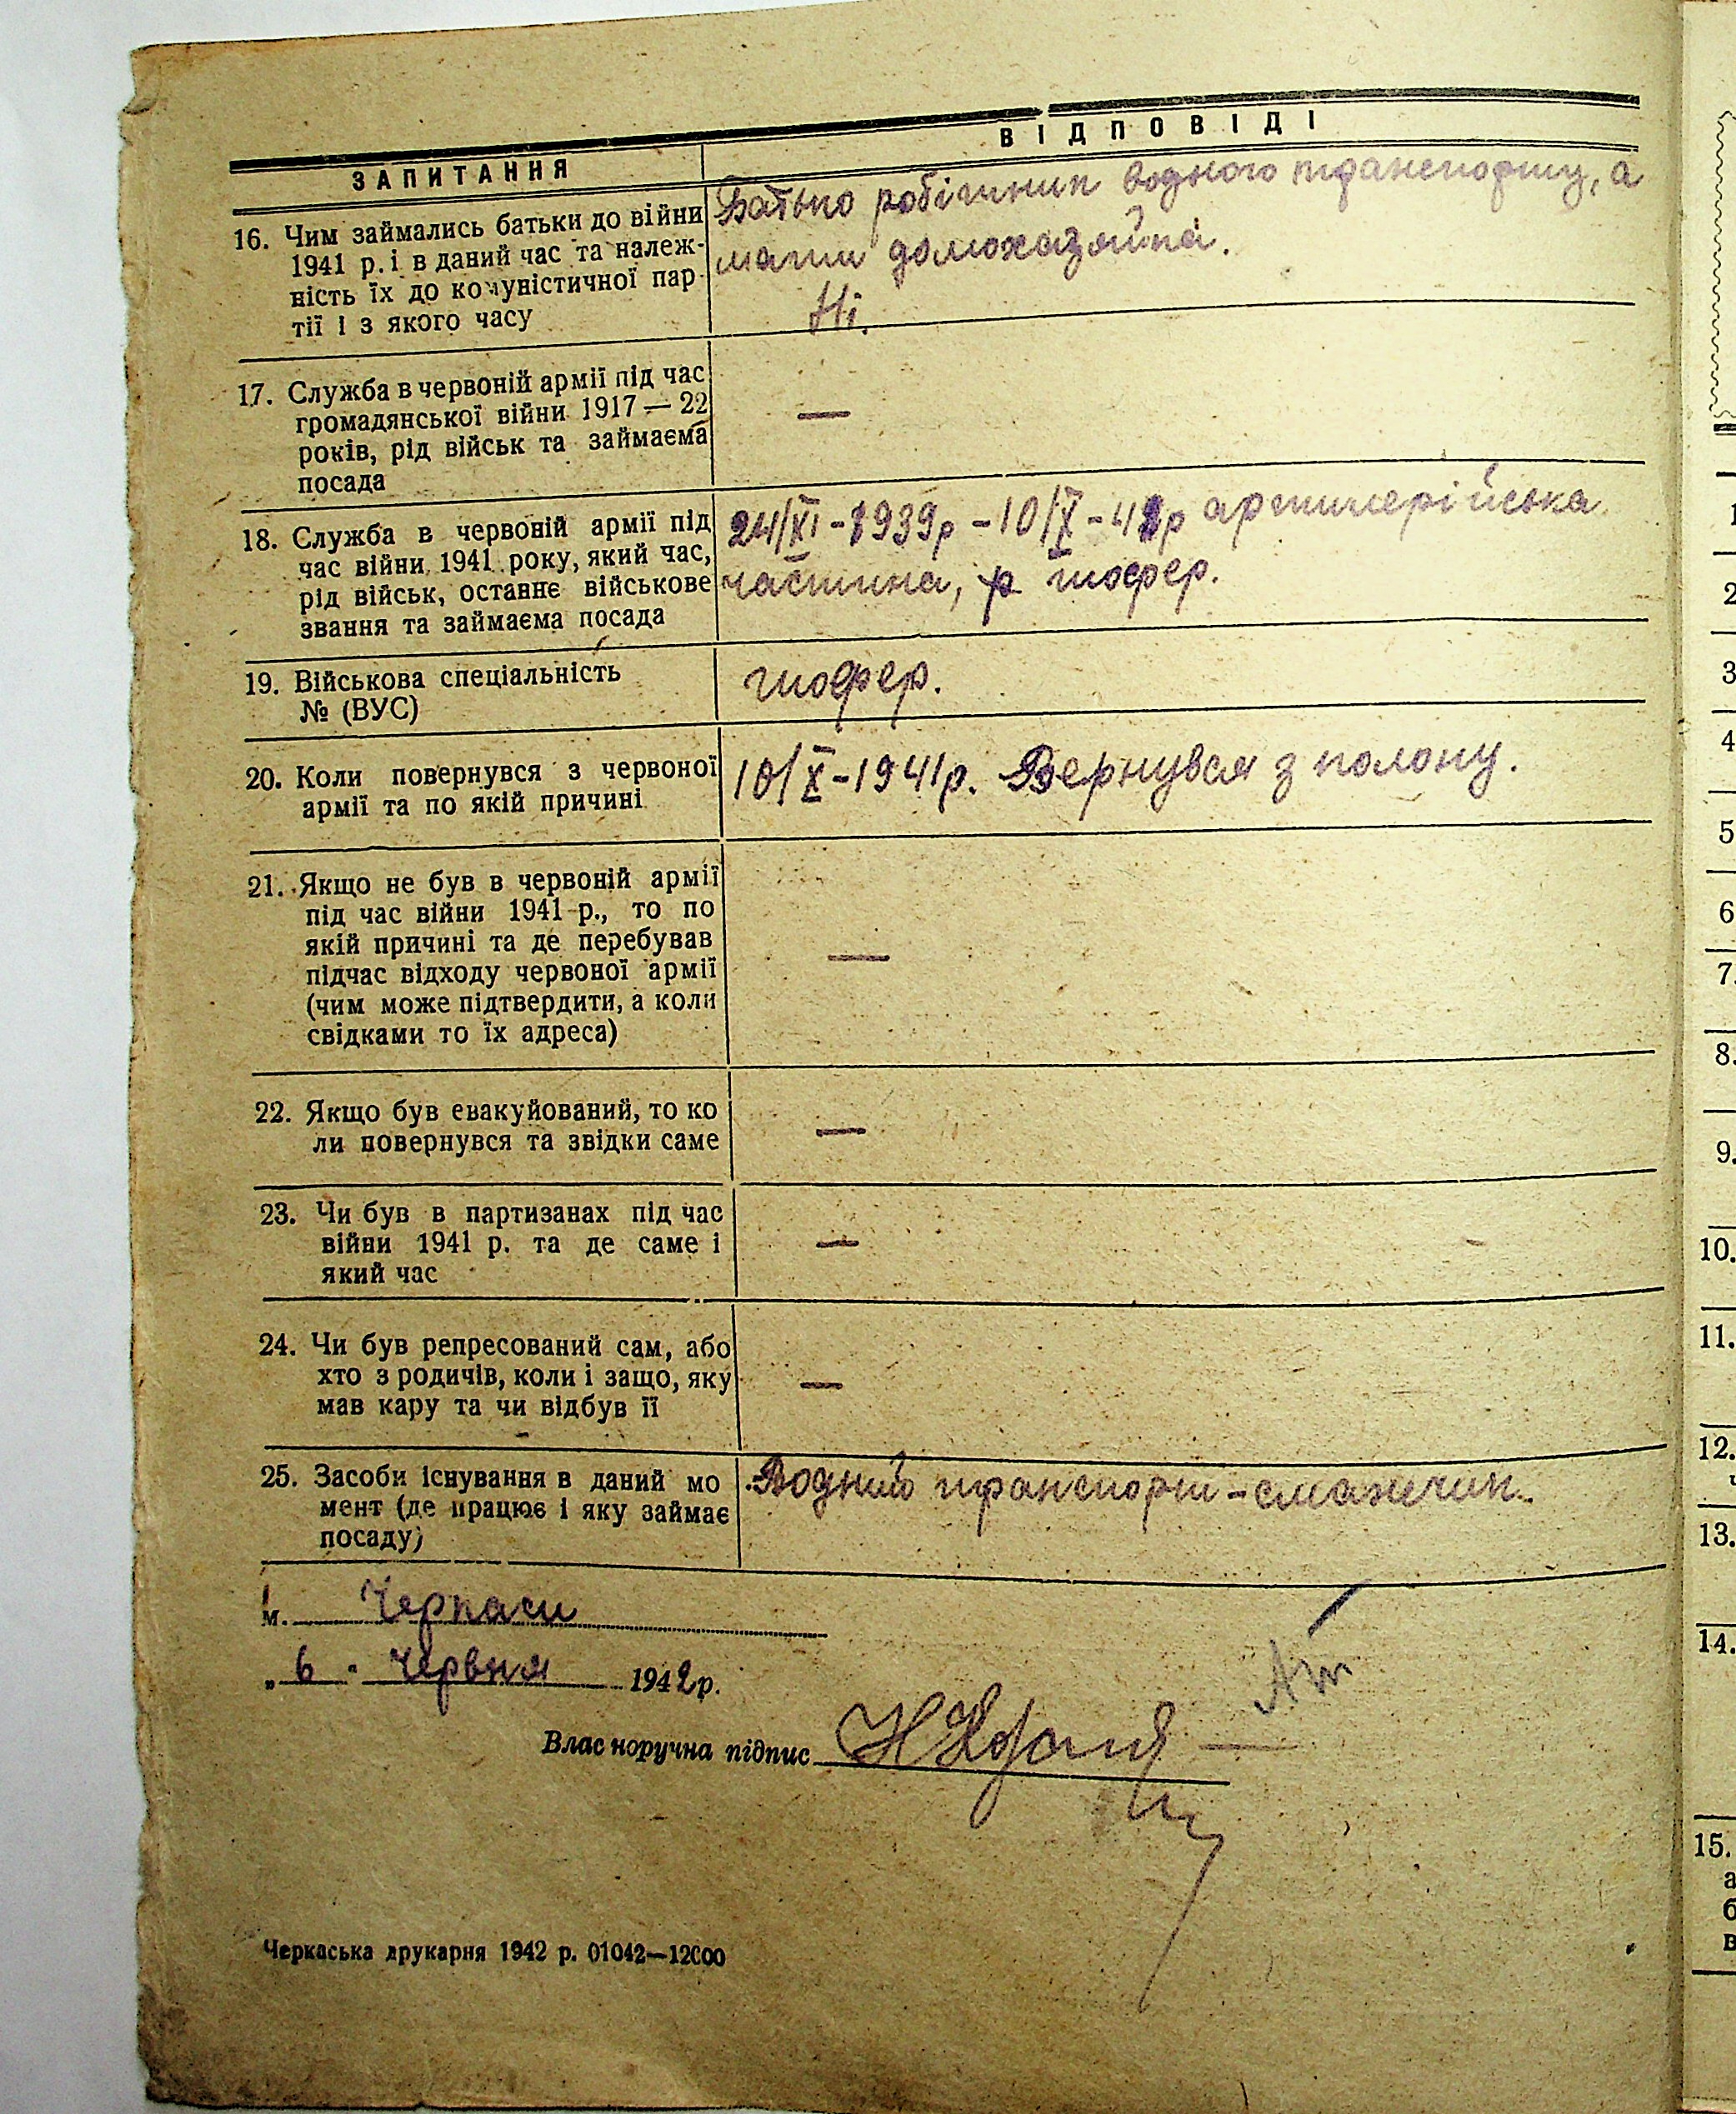 ЗАПИТАННЯ
ВІДПОВІДІ
16. Чим займались батьки до війни
1941 р. і в даний час та належ-
ність їх до комуністичної пар-
тії і з якого часу
Батько робітник водного транспорту, а
мати домохазяйка.
Ні.
17. Служба в червоній армії під час
громадянської війни 1917 — 22
років, рід військ та займаєма
посада
—
18. Служба в червоній армії під
час війни 1941 року, який час,
рід військ, останнє військове
звання та займаєма посада
24/XI - 1939р - 10/X - 41р артилерійська
частина, р. шофер.
19. Військова спеціальність
№ (ВУС)
шофер.
20. Коли повернувся з червоної
армії та по якій причині
10/X - 1941р. Вернувся з полону.
21. Якщо не був в червоній армії
під час війни 1941 р., то по
якій причині та де перебував
підчас відходу червоної армії
(чим може підтвердити, а коли
свідками то їх адреса)
—
22. Якщо був евакуйований, то ко
ли повернувся та звідки саме
—
23. Чи був в партизанах під час
війни 1941 р. та де саме і
який час
—
24. Чи був репресований сам, або
хто з родичів, коли і защо, яку
мав кару та чи відбув її
—
25. Засоби існування в даний мо
мент (де працює і яку займає
посаду)
Водний транспорт - смажчик.
м. Черкаси
„ 6 " Червня 1942 р.
Власноручна підпис
Черкаська друкарня 1942 р. 01042—12000
1
2
3
4
5
6
7.
8.
9.
10.
11.
12.
13.
14.
15.
а
б
в